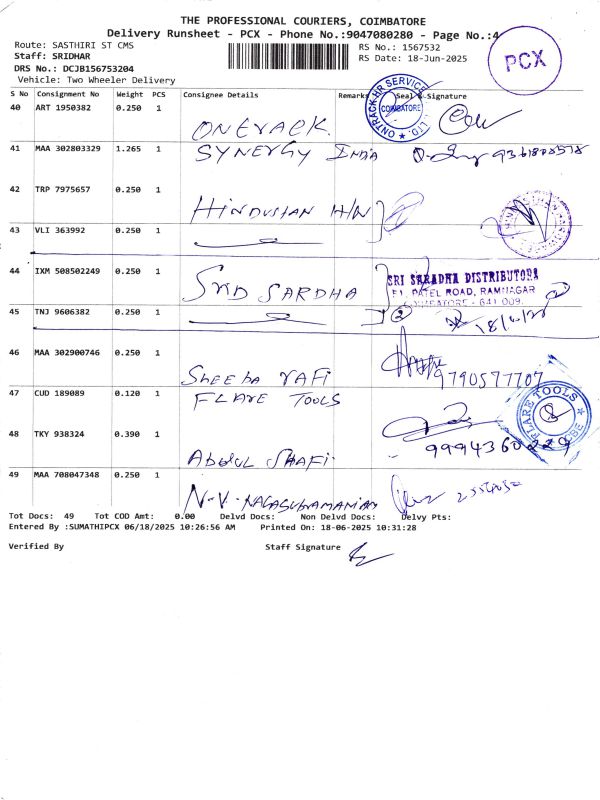 THE PROFESSIONAL COURIERS, COIMBATORE
Delivery Runsheet - PCX - Phone No.:9047080280 - Page No.:4
Route: SASTHIRI ST CMS
RS No.: 1567532
PCX
Staff: SRIDHAR
RS Date: 18-Jun-2025
DRS No.: DCJB156753204
Vehicle: Two Wheeler Delivery
S No Consignment No Weight PCS Consignee Details Remarks Seal & Signature
40 ART 1950382 0.250 1
ONTRACK HR SERVICE LTD.
COIMBATORE
ONTRACK
41 MAA 302803329 1.265 1
SYNERGY INDIA
42 TRP 7975657 0.250 1
HINDUSTAN H/W
43 VLI 363992 0.250 1
44 IXM 508502249 0.250 1
SRI SARDHA
SRI SARADHA DISTRIBUTORS
PATEL ROAD, RAMNAGAR
COIMBATORE - 641 009.
45 TNJ 9606382 0.250 1
2
46 MAA 302900746 0.250 1
Sheeba RAFI
9790577707
47 CUD 189089 0.120 1
FLARE TOOLS
FLARE TOOLS
48 TKY 938324 0.390 1
9994360229
Abdul Shafi
49 MAA 708047348 0.250 1
N-V-NAGASUBRAMANIAN
Tot Docs: 49 Tot COD Amt: 0.00 Delvd Docs: Non Delvd Docs: Delvy Pts:
Entered By :SUMATHIPCX 06/18/2025 10:26:56 AM Printed On: 18-06-2025 10:31:28
Verified By Staff Signature